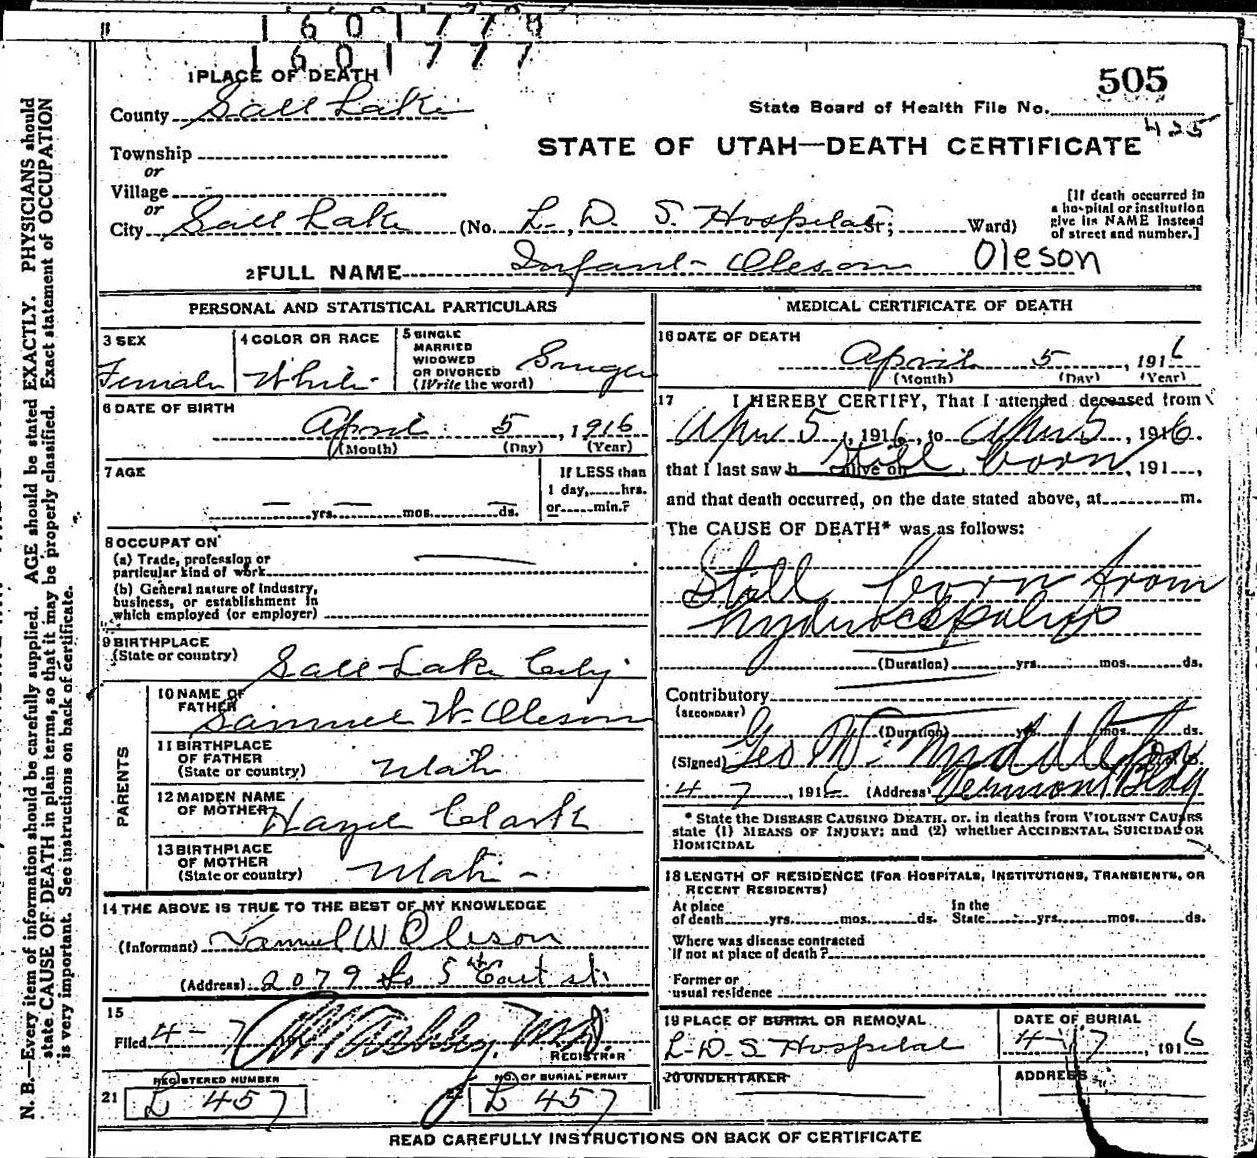 1601778
1601777
1 PLACE OF DEATH
505
County Salt Lake
State Board of Health File No.
425
Township
STATE OF UTAH—DEATH CERTIFICATE
or
Village
or
City Salt Lake (No. L. D. S. Hospital St; Ward)
[If death occurred in
a hospital or institution
give its NAME instead
of street and number.]
2 FULL NAME Infant Oleson Oleson
PERSONAL AND STATISTICAL PARTICULARS
3 SEX
Female
4 COLOR OR RACE
White
5 SINGLE
MARRIED
WIDOWED
OR DIVORCED
(Write the word)
Single
6 DATE OF BIRTH
April 5, 1916
(Month) (Day) (Year)
7 AGE
yrs. mos. ds.
If LESS than
1 day, hrs.
or min.?
8 OCCUPATION
(a) Trade, profession or
particular kind of work
(b) General nature of industry,
business, or establishment in
which employed (or employer)
9 BIRTHPLACE
(State or country)
Salt Lake City
PARENTS
10 NAME OF
FATHER
Samuel W. Oleson
11 BIRTHPLACE
OF FATHER
(State or country)
Utah
12 MAIDEN NAME
OF MOTHER
Hazel Clark
13 BIRTHPLACE
OF MOTHER
(State or country)
Utah
14 THE ABOVE IS TRUE TO THE BEST OF MY KNOWLEDGE
(Informant) Samuel W Oleson
(Address) 2079 So 5th East st.
15
Filed 4-7 191 M.D.
REGISTRAR
21
REGISTERED NUMBER
L 457
22
NO. OF BURIAL PERMIT
L 457
MEDICAL CERTIFICATE OF DEATH
16 DATE OF DEATH
April 5, 1916
(Month) (Day) (Year)
17 I HEREBY CERTIFY, That I attended deceased from
Apr 5, 1916, to Apr 5, 1916.
that I last saw h alive on Still born, 191 ,
and that death occurred, on the date stated above, at m.
The CAUSE OF DEATH* was as follows:
Still born from
hydrocephalus
(Duration) yrs. mos. ds.
Contributory
(SECONDARY)
(Duration) yrs. mos. ds.
(Signed) Geo W. Middleton
4 7, 1916 (Address) Vermont Bldg
* State the DISEASE CAUSING DEATH, or, in deaths from VIOLENT CAUSES
state (1) MEANS OF INJURY; and (2) whether ACCIDENTAL, SUICIDAL OR
HOMICIDAL
18 LENGTH OF RESIDENCE (FOR HOSPITALS, INSTITUTIONS, TRANSIENTS, OR
RECENT RESIDENTS)
At place
of death yrs. mos. ds.
In the
State yrs. mos. ds.
Where was disease contracted
if not at place of death?
Former or
usual residence
19 PLACE OF BURIAL OR REMOVAL
L-D-S Hospital
DATE OF BURIAL
4-7, 1916
20 UNDERTAKER
ADDRESS
READ CAREFULLY INSTRUCTIONS ON BACK OF CERTIFICATE
N. B.—Every item of information should be carefully supplied. AGE should be stated EXACTLY. PHYSICIANS should
state CAUSE OF DEATH in plain terms, so that it may be properly classified. Exact statement of OCCUPATION
is very important. See instructions on back of certificate.